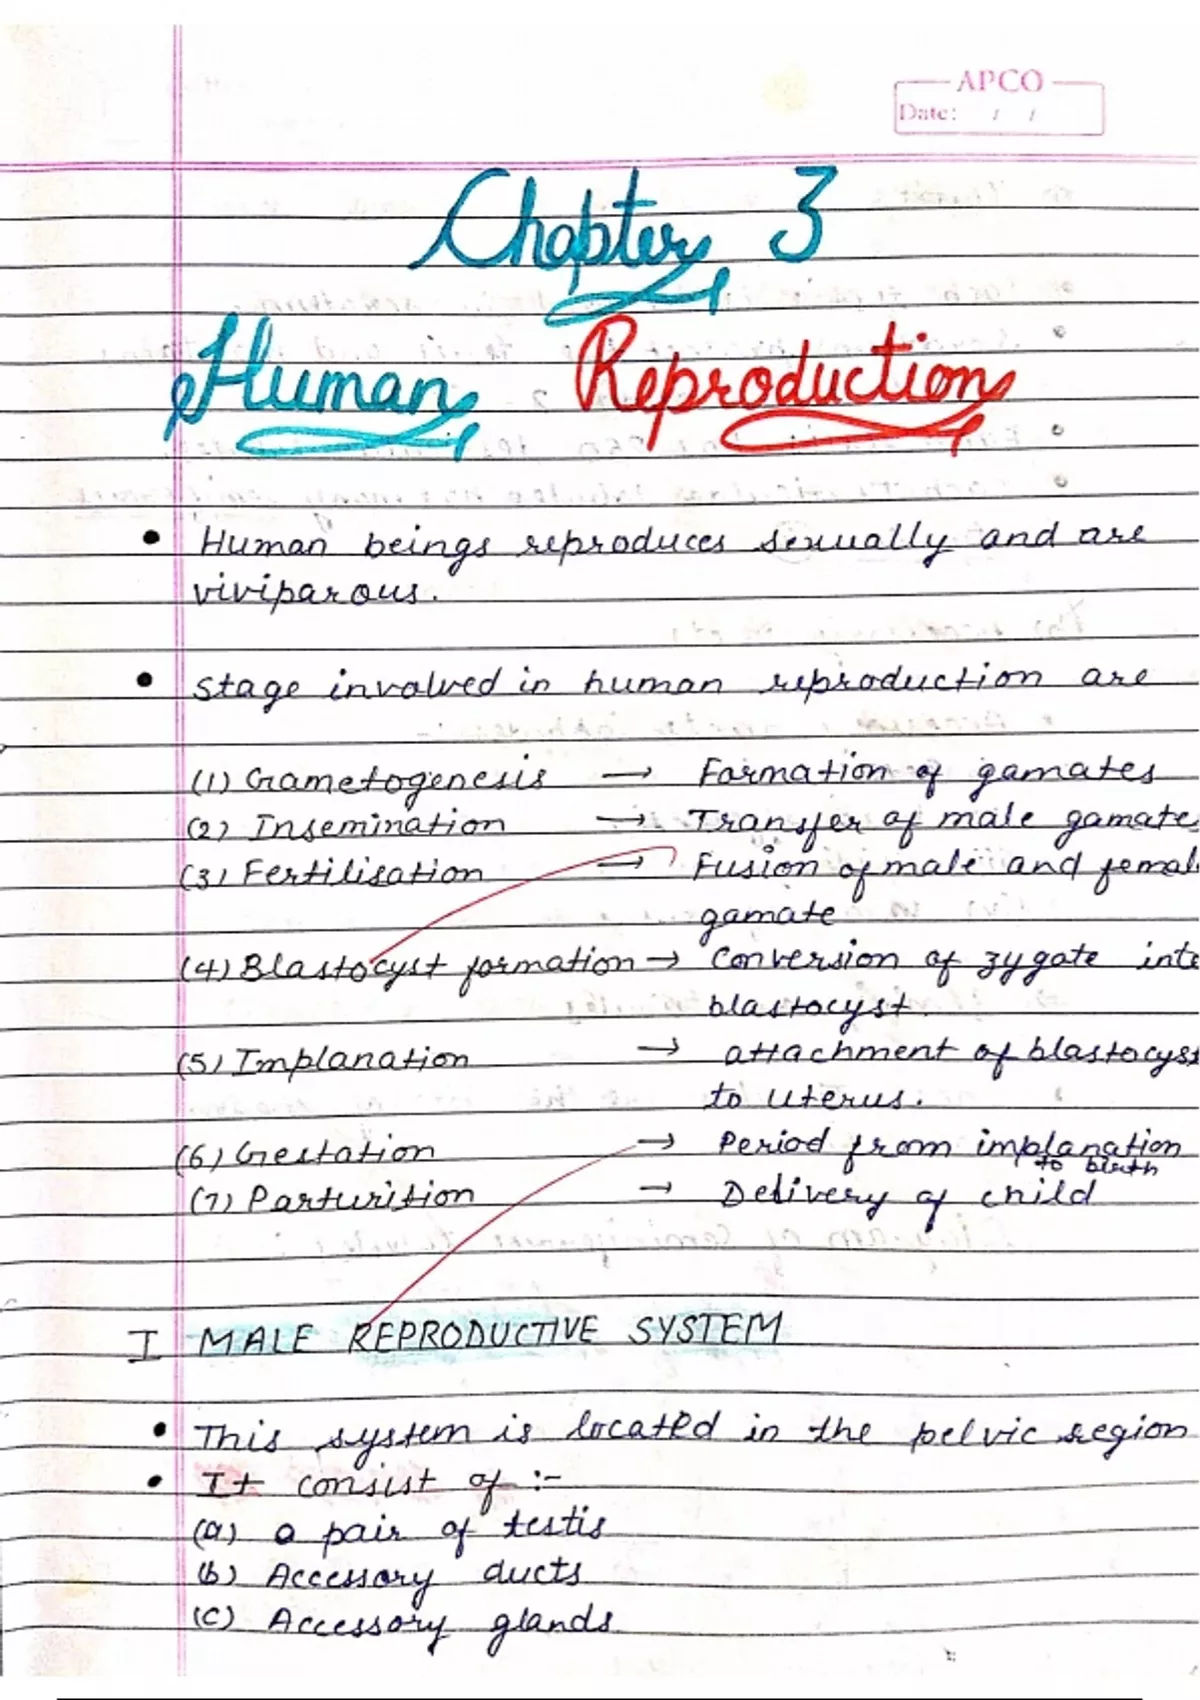 APCO
Date: / /
Chapter 3
Human Reproduction
• Human beings reproduces sexually and are
viviparous.
• stage involved in human reproduction are
(1) Gametogenesis → Formation of gamates
(2) Insemination → Transfer of male gamate
(3) Fertilisation → Fusion of male and femal
gamate
(4) Blastocyst formation → Conversion of zygate into
blastocyst.
(5) Implanation → attachment of blastocyss
to uterus.
(6) Gestation → Period from implanation
to birth
(7) Parturition → Delivery of child
I MALE REPRODUCTIVE SYSTEM
• This system is located in the pelvic region
• It consist of :-
(a) a pair of testis
(b) Accessory ducts
(c) Accessory glands